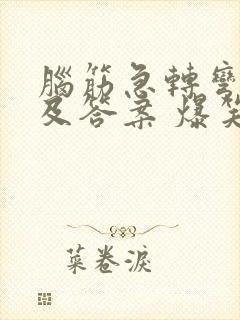 腦筋急轉彎
及答案 爆笑
菜卷淚